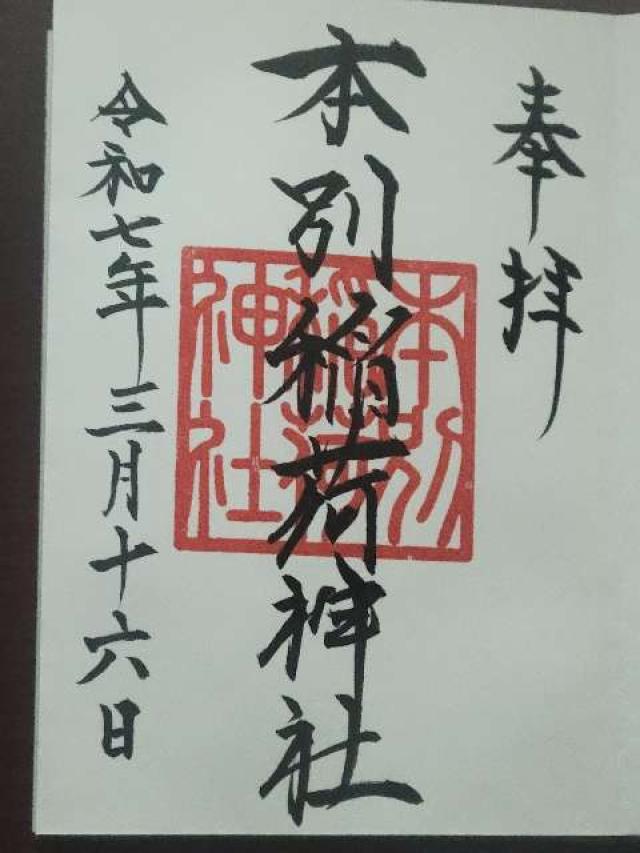 奉拝
本別稲荷神社
本別稲荷神社
令和七年三月十六日